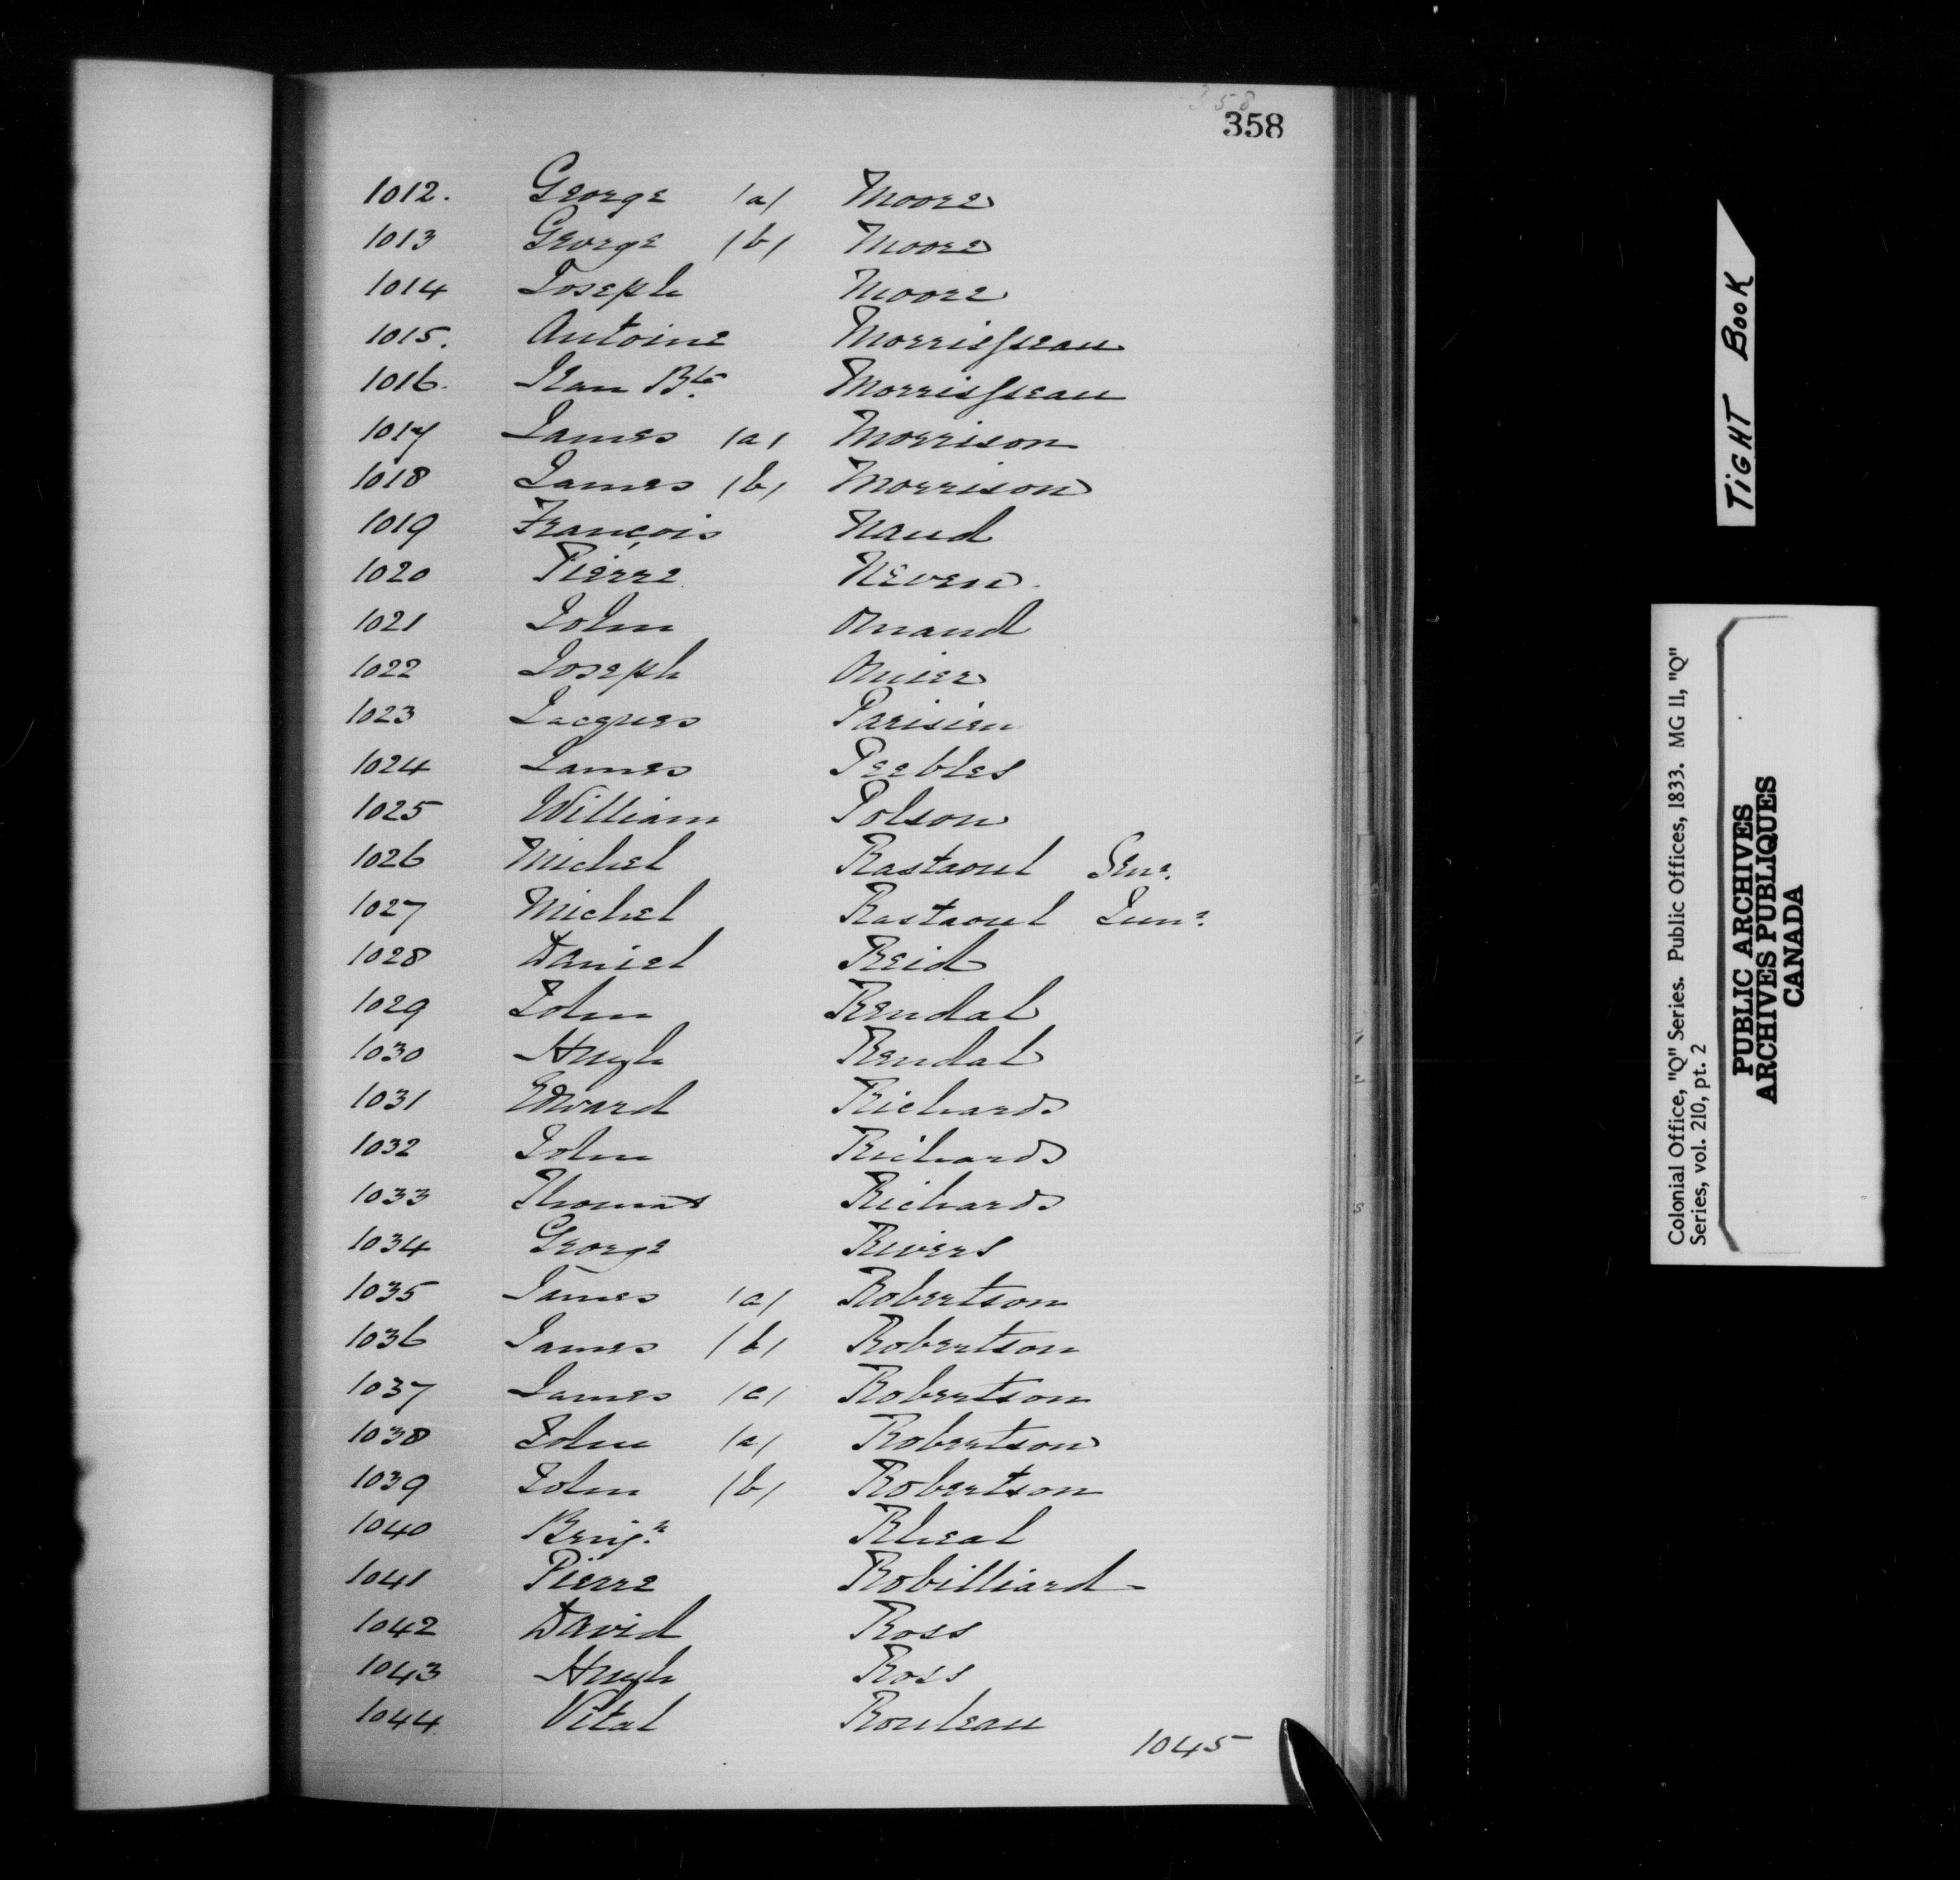 358
358
1012. George (a) Moore
1013 George (b) Moore
1014 Joseph Moore
1015. Antoine Morrisseau
1016. Jean Bte. Morrisseau
1017 James (a) Morrison
1018 James (b) Morrison
1019 François Naud
1020 Pierre Neven
1021 John Onand
1022 Joseph
1023 Jacques Parisien
1024 James Peebles
1025 William Polson
1026 Michel Rastaoul Senr.
1027 Michel Rastaoul Junr.
1028 Daniel Reid
1029 John Rendal
1030 Hugh Rendal
1031 Edward Richards
1032 John Richards
1033 Thomas Richards
1034 George Rivers
1035 James (a) Robertson
1036 James (b) Robertson
1037 James (c) Robertson
1038 John (a) Robertson
1039 John (b) Robertson
1040 Benjn. Rheal
1041 Pierre Robilliard
1042 David Ross
1043 Hugh Ross
1044 Vital Rouleau
1045
TiGHT BOOK
Colonial Office, "Q" Series. Public Offices, 1833. MG 11, "Q"
Series, vol. 210, pt. 2
PUBLIC ARCHIVES
ARCHIVES PUBLIQUES
CANADA